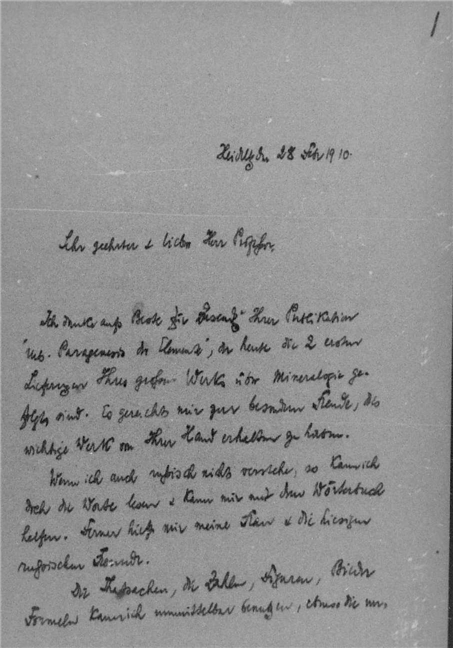 1
Heidelbg den 28 Febr 1910.
Sehr geehrter & lieber Herr Professor,
Ich danke aufs Beste für Ihrer Publikation
"üb. Paragenesis der Elemente", der heute die 2 ersten
Lieferungen Ihres großen Werks über Mineralogie ge-
folgt sind. Es gereicht mir zur besondern Freude, das
wichtige Werk von Ihrer Hand erhalten zu haben.
Wenn ich auch russisch nicht verstehe, so kann ich
doch die Worte lesen & kann mir mit dem Wörterbuch
helfen. Ferner hilft mir meine Frau & die hiesigen
russischen Freunde.
Die Thatsachen, die Zahlen, Figuren, Bilder
Formeln kann ich unmittelbar benutzen, ebenso die